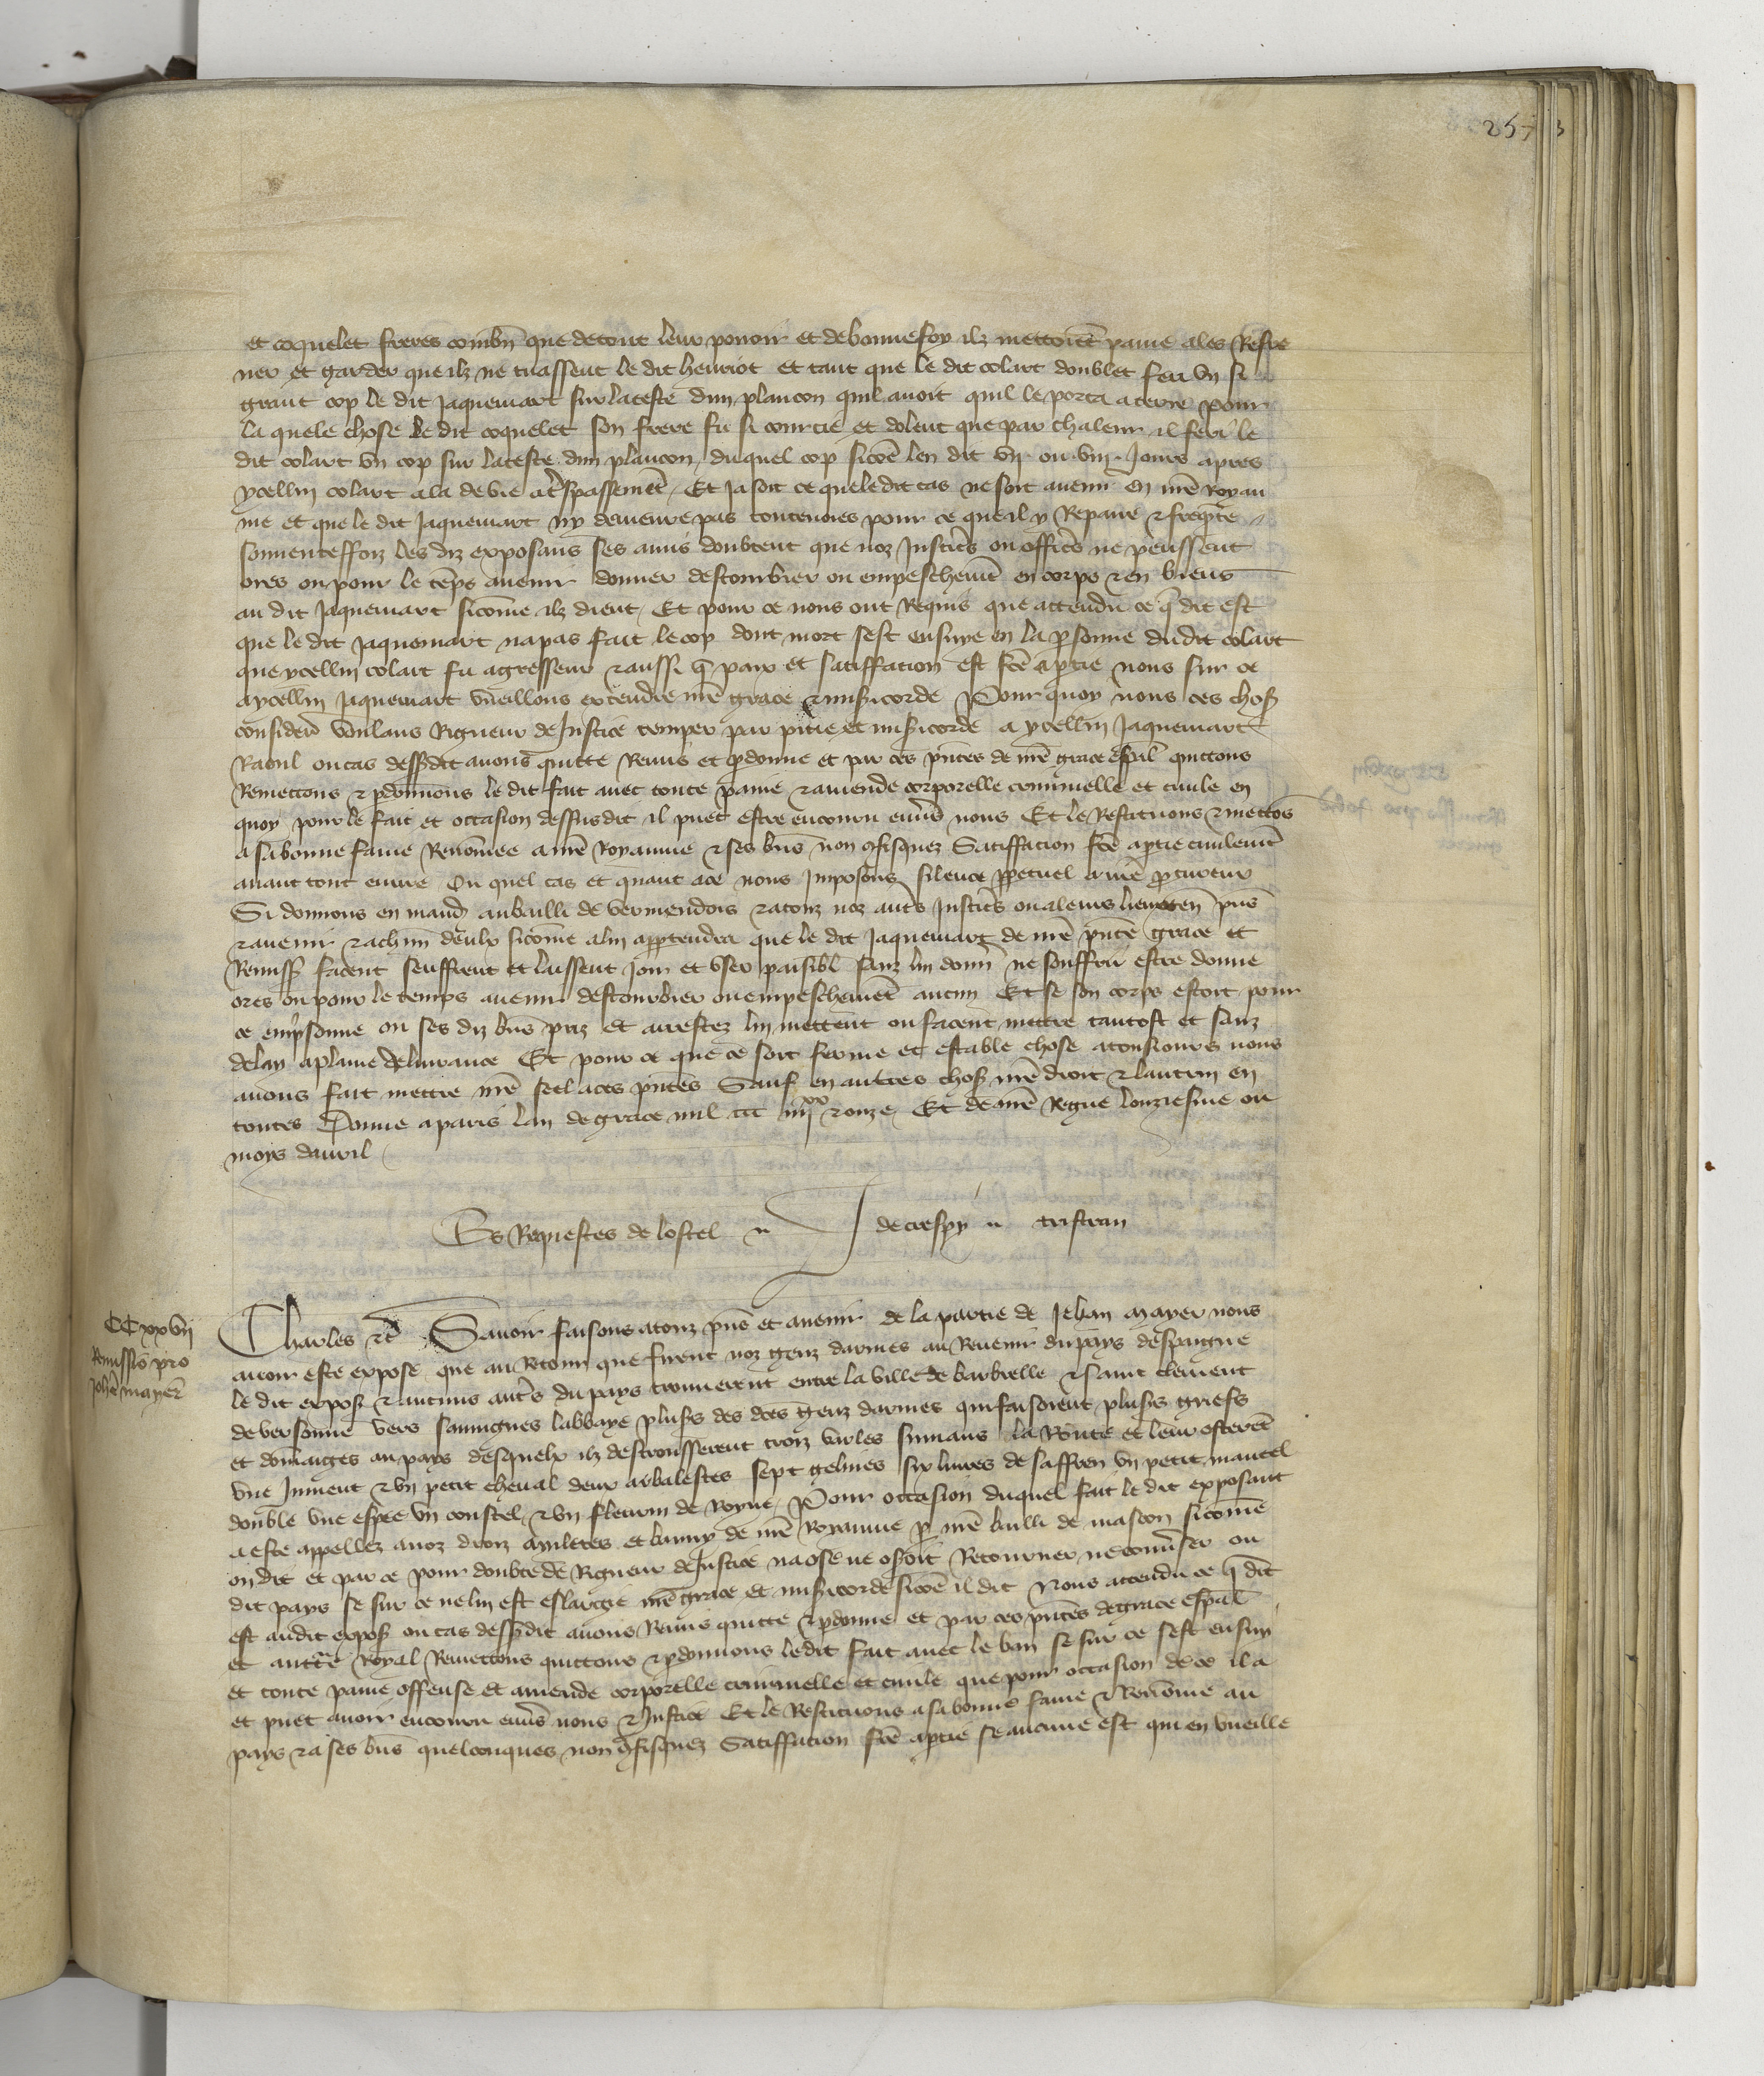 257
et coquelet freres combn que de tout leur povoir et de bonne foy ilz mettoient paine a les Refre
ner et garder que ilz ne tuassent le dit henriot et tant que le dit colart doublet feri un si
grant cop le dit Jaquemart sur la teste dun plancon quil avoit quil le porta a terre pour
la quele chose le dit coquelet son frere fu si courcie et dolent que par chaleur il feri le
dit colart un cop sur la teste dun plancon duquel cop sicoe len dit vij ou viij Jours apres
ycellui colart ala de vie a trespassement Et Ja soit ce que le dit cas ne soit avenu en nre Royau
me et que le dit Jaquemart ny demeure pas toutevoies pour ce que il y Repaire et frequente
souventeffoiz les diz exposans ses amis doubtent que noz Justicrs ou officrs ne peussent
ores ou pour le temps avenir donner destourbier ou empeschement en corps et en biens
au dit Jaquemart sicome ilz dient Et pour ce nous ont Requis que attendu ce q dit est
que le dit Jaquemart na pas fait le cop dont mort sest ensuye en la psonne dudit colart
que ycellui colart fu agresseur et aussi q paix et satiffation est fce a ptie nous sur ce
a ycellui Jaquemart vueillons extendre nre grace et misicorde Pour quoy nous ces chos
consider voulans Rigueur de Justice temper par pitie et misicorde a ycellui Jaquemart
Raoul ou cas dessdit avons quitte Remis et pdonne et par ces pntes de nre grace espal quittons
Remettons et pdonnons le dit fait avec toute paine et amende corporelle criminelle et civile en
quoy pour le fait et occasion dessusdit il puet estre encouru envers nous Et le Restituons et mettos
a sa bonne fame Renommee a nre Royaume et ses bns non confisquez Satiffacion fce a ptie civilemt
avant tout euvre Ou quel cas et quant a ce nous Imposons silence ppetuel a nre pcureur
Si donnons en mand au bailli de vermendois et a touz noz autrs Justicrs ou a leurs lieuten pns
et avenir et a chun deulx sicome a lui apptendra que le dit Jaquemart de nre pnte grace et
Remiss facent seuffrent et laissent joir et user paisibl sanz lui donn ne souffrir estre donne
ores ou pour le temps avenir destourbier ou empeschement aucun Et se son corps estoit pour
ce emprisonne ou ses diz bns priz et arrestez lui mettent ou facent mettre tantost et sanz
delay a plaine delivrance Et pour ce que ce soit ferme et estable chose a tousjours nous
avons fait mettre nre seel a ces pntes Sauf en autres chos nre droit et lautrui en
toutes Donne a paris lan de grace mil ccc iiijxx et onze Et de nre Regne lonziesme ou
moys davril
Es Requestes de lostel J de crespy tristran
CCxxvij
Remissio pro
Johe mayer
Charles etc Savoir faisons a touz pns et avenir de la partie de Jehan mayer nous
avoir este expose que au Retour que firent noz genz darmes au Revenir du pays despaigne
le dit expos et aucuns autrs du pays trouverent entre la ville de barbielle et saint clement
de versonne vers sauvignes labbaye plusrs des dces genz darmes qui faisoient plusrs griefs
et domaiges au pays desquelx ilz destrousserent troiz varles suivans la Route et leur osterent
une Jument et un petit cheval deux arbalestes sept gelines six livres de saffren un petit mantel
double une espee un coustel et un fleurin de Royne Pour occasion duquel fait le dit exposant
a este appellez a noz droiz et banny de nre Royaume p nre bailli de mascon sicome
on dit et par ce pour doubte de Rigueur de Justice na ose ne oseroit Retourner ne converser ou
dit pays se sur ce ne lui est eslargie nre grace et misicorde sicoe il dit Nous attendu ce q dit
est audit expos ou cas dessdit avons Remis quitte et pdonne et par ces pntes de grace espal
et auttre Royal Remettons quittons et pdonnons le dit fait avec le ban se sur ce sest ensuy
et toute paine offense et amende corporelle criminelle et civile que pour occasion de ce il a
et puet avoir encouru envrs nous et Justice Et le Restituons a sa bonne fame et Renomme au
pays et a ses bns quelconques non confisquez Satiffacion fce a ptie se aucune est qui en vueille